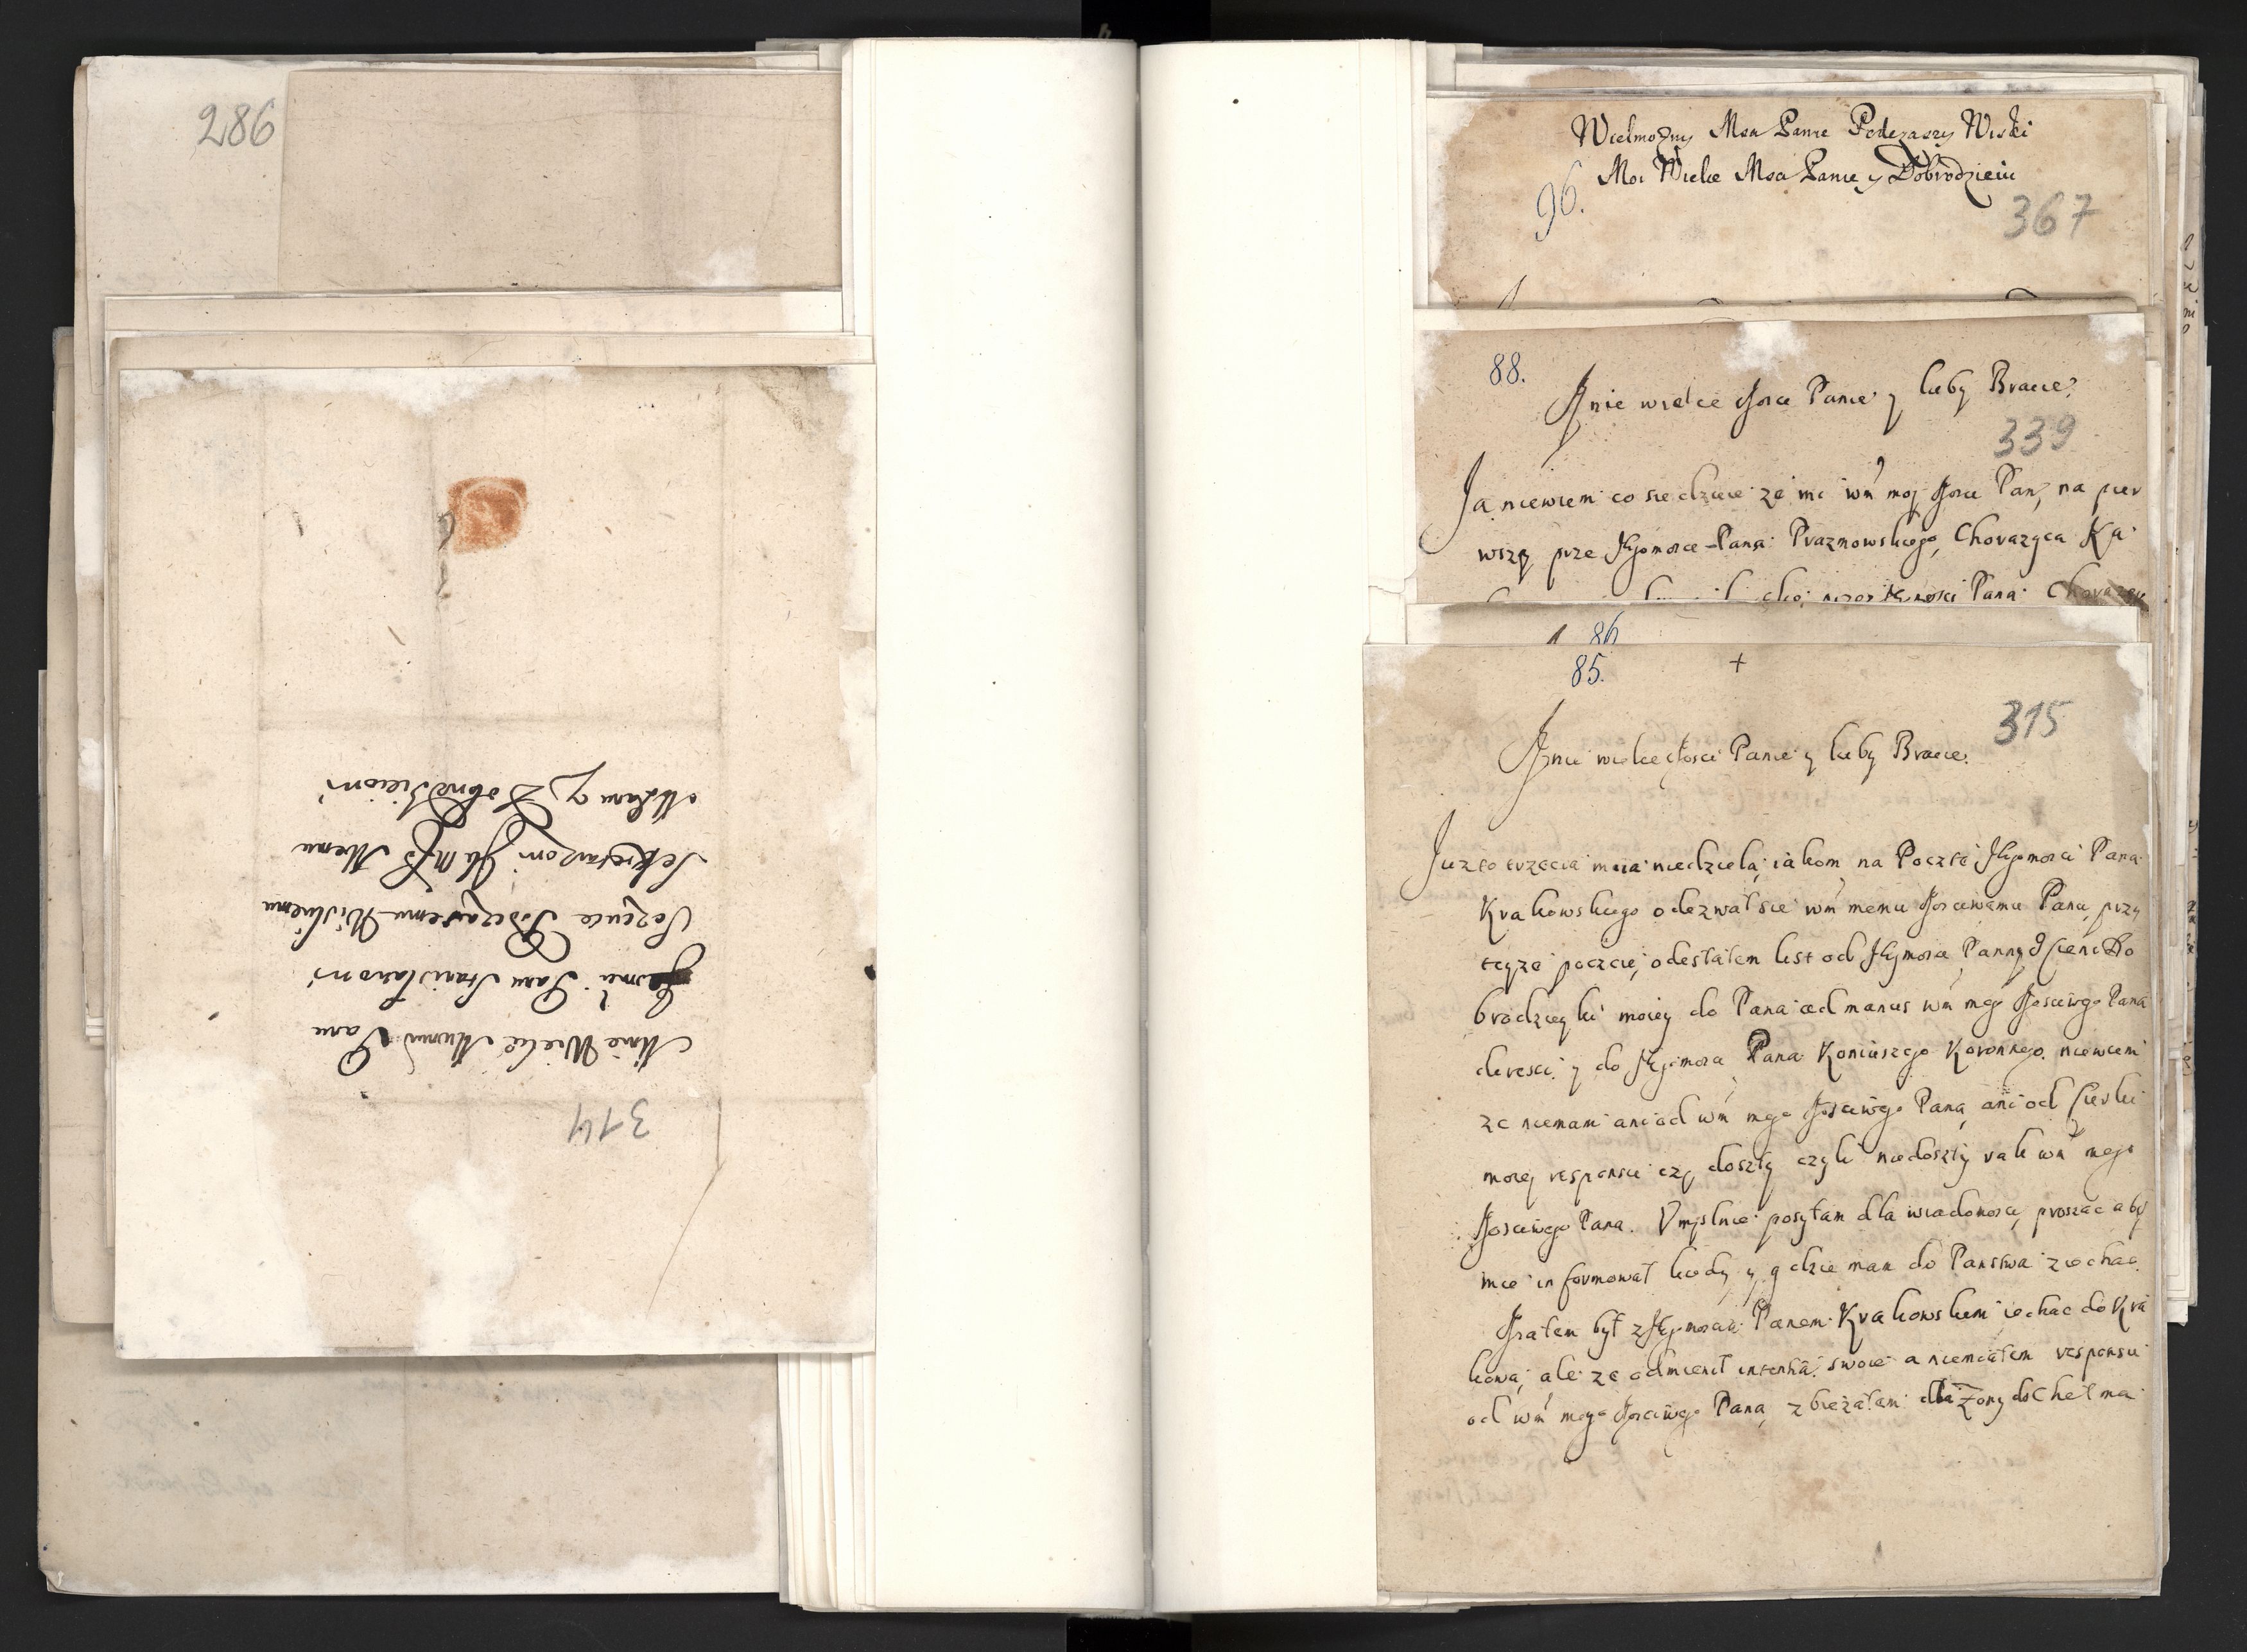 286
314
Mnie Wielce Memu Panu
Jemci Panu Stanisławowi
Szczuce Podczaszemu Wiskiemu
Sekretarzowi JKMści Memu
MPanu y Dobrodzieiowi
Wielmozny Msci Panie Podczaszy Wiski
Moi Wielce Msci Panie y Dobrodzieiu
96.
367
88.
Mnie wielce Mosci Panie y luby Bracie
339
Ja niewiem co sie dzieie ze mi wm moj Mosci Pan, na pier
wszy prze Jegomosci Pana Prazmowskiego, Chorazyca
Pana Chorazy
86
85.
+
315
Mnie wielce Mosci Panie y luby Bracie.
Juz to trzecia miia niedziela, iakom na Poczte Jegomosci Pana
Krakowskiego odezwał sie wm memu Mosciwemu Panu, przy
teyze poczcie, odesłałem list od Jegomosci Panny Do
brodzieyki moiey do Pana ad manus wm mego Mosciwego Pana
y do Jegomosci Pana Koniuszego Koronnego. niewiem
ze niemam ani od wm mego Mosciwego Pana, ani od
moiey responsu czy doszły czyli niedoszły rak wm mego
Mosciwego Pana. Vmyslnie posyłam dla wiadomosci, proszac aby
mie informował kiedy y gdzie mam do Panstwa ziechac.
Miałem był z Jegomoscia Panem Krakowskiem iechac do Kra
kowa, ale ze odmienił intentia swoie a niemiałem responsu
od wm mego Mosciwego Pana, zbiezałem dla Zony do Chełma